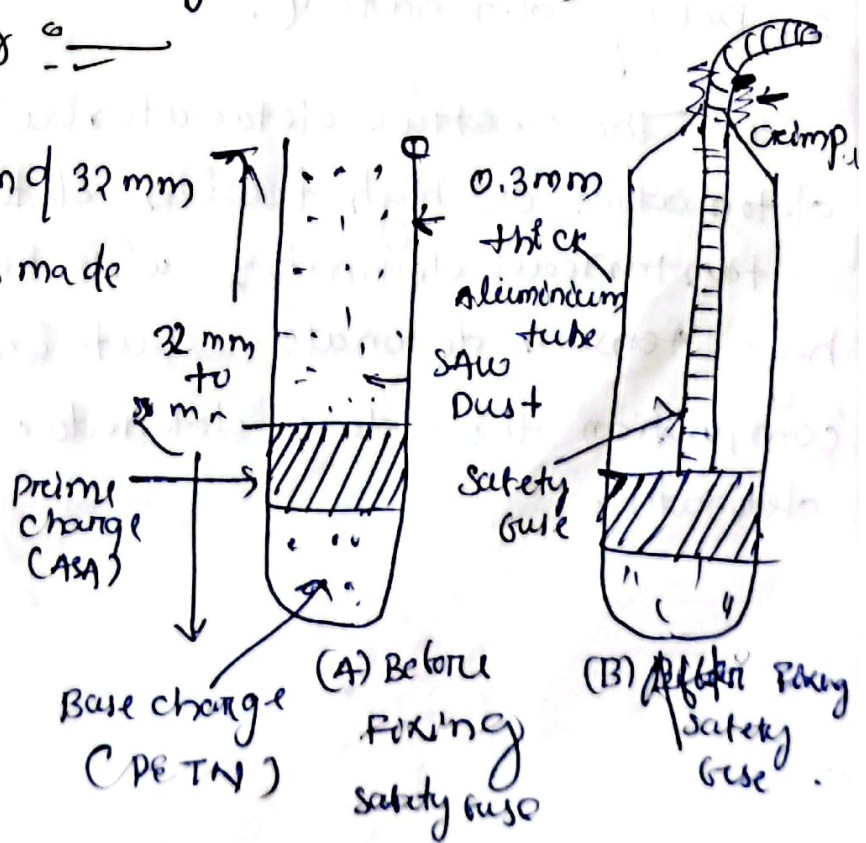 32 mm
made
32 mm
to
mm
prime
charge
(ASA)
Base charge
(PETN)
0.3mm
thick
Aluminium
tube
SAW
Dust
Safety
fuse
(A) Before
Fixing
safety fuse
Crimp
(B) After Fixing
safety
fuse.